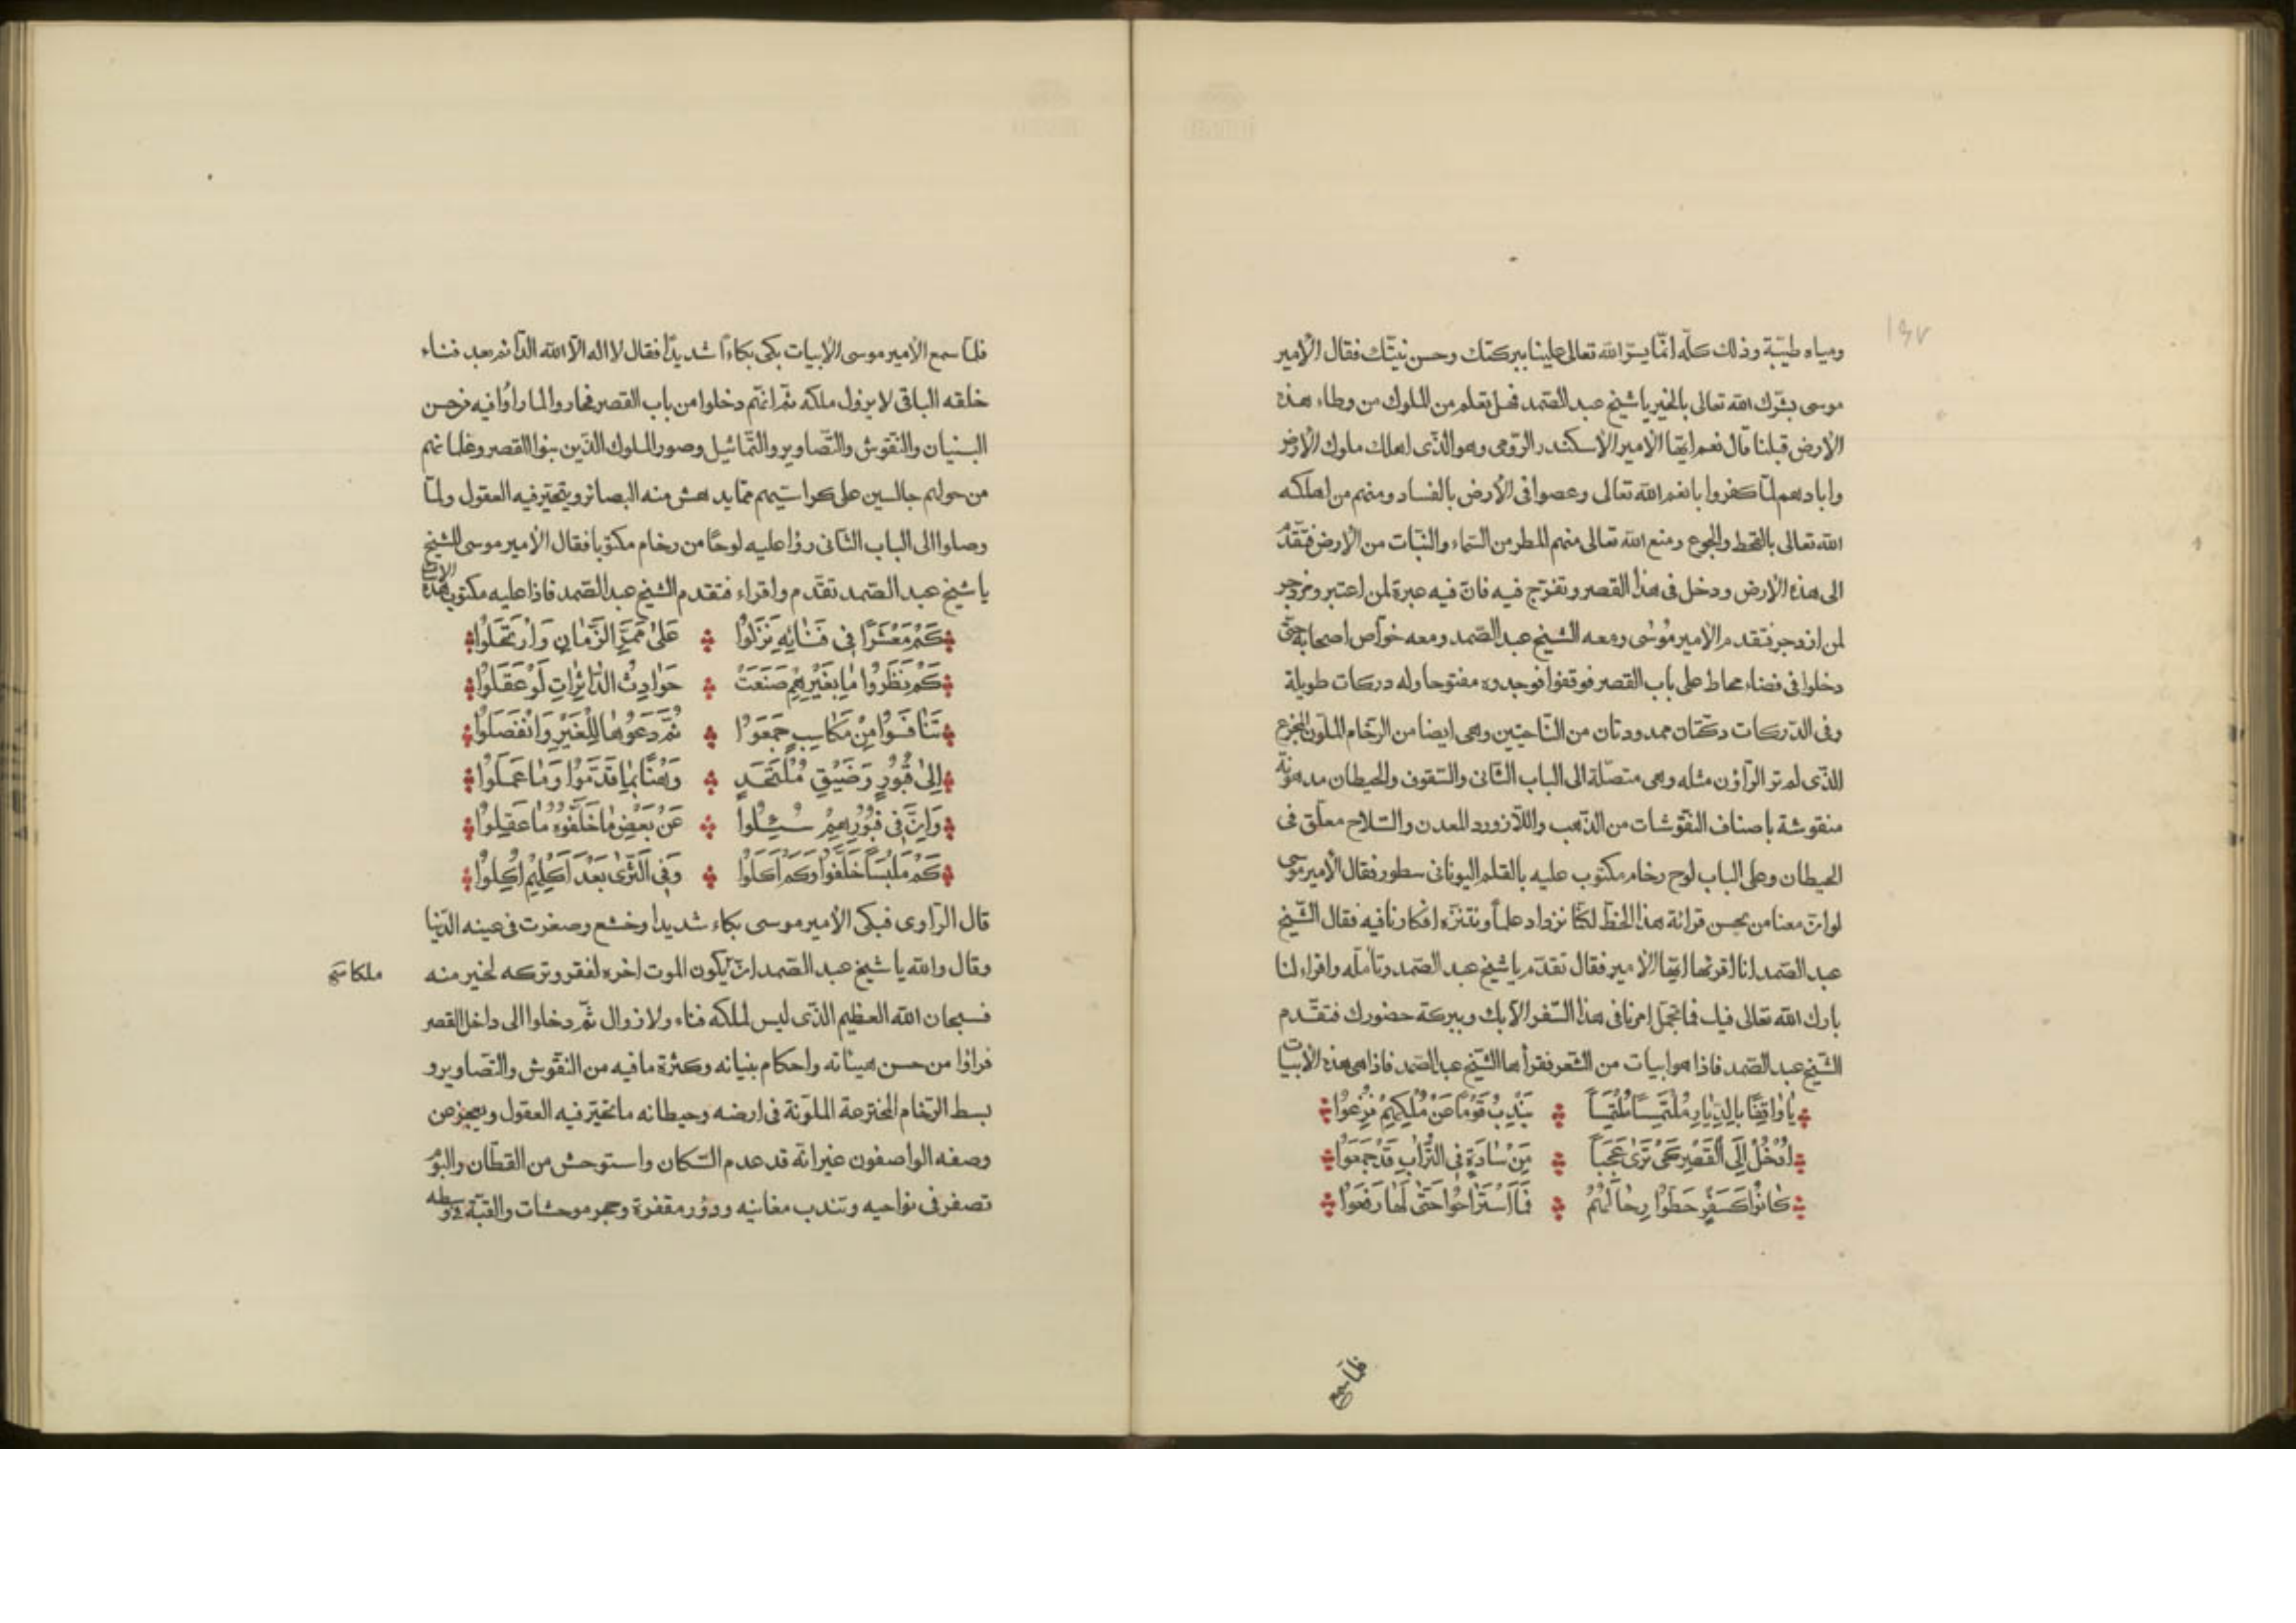 ١٩٧
ومياه طيّبة وذلك كلّه انّما يسّر الله تعالى علينا ببركتك وحسن نيّتك فقال الأمير
موسى بشّرك الله تعالى بالخير يا شيخ عبد الصّمد فهل تعلم من الملوك من وطاء هذه
الأرض قبلنا قال نعم ايّها الامير الأسكندر الرّومى وهو الّذى اهلك ملوك الأرض
وابادهم لمّا كفروا بانعم الله تعالى وعصوا فى الأرض بالفساد ومنهم من اهلكه
الله تعالى بالقحط والجوع ومنع الله تعالى منهم المطر من السّماء والنّبات من الأرض فتقدّم
الى هذه الأرض ودخل فى هذا القصر وتفرّج فيه فانّ فيه عبرة لمن اعتبر ومزدجر
لمن ازدجر فتقدم الأمير موسى ومعه الشيخ عبد الصّمد ومعه خوّاص اصحابه حتّى
دخلوا فى فضاء محاط على باب القصر فوقفوا فوجدوه مفتوحا وله دركات طويلة
وفى الدّركات دكّتان ممدودتان من النّاحيتين وهى ايضا من الرّخام الملوّن المجزع
الّذى لم تر الرّاؤن مثله وهى متصّلة الى الباب الثّانى والسّقوف والحيطان مدهونة
منقوشة باصناف النّقوشات من الذّهب واللّازورد المعدن والسّلاح معلّق فى
الحيطان وعلى الباب لوح رخام مكتوب عليه بالقلم اليونانى سطور فقال الأمير موسى
لوانّ معنا من يحسن قرائة هذا الخطّ لكنّا نزداد علماً ونتنزّه افكارنا فيه فقال الشّيخ
عبد الصّمد انا اقرئها ايّها الأمير فقال تقدّم يا شيخ عبد الصّمد وتأمله واقراء لنا
بارك الله تعالى فيك فما تجمّل امرنا فى هذا السّفر الّا بك وببركة حضورك فتقدّم
الشّيخ عبد الصّمد فاذا هو ابيات من الشّعر فقرأها الشّيخ عبد الصّمد فاذا هى هذه الأبيات
يَا وَاقِفًا بِالدِّيَارِ مُلْتَمِسًا مُلْتَمِسًا يَنْدِبُ قَوْمًا عَنْ مُلْكِهِمْ نُزِعُوا
اُدْخُلْ اِلَى الْقَصْرِ كَىْ تَرٰى عَجَبًا مِنْ سَادَةٍ فِى التُّرَابِ قَدْ جَمَعَوْا
كَانُوا كَسَفْرٍ حَطَوْا رِحَالَهُمْ فَمَا اسْتَرَاحُوا حَتّٰى لَهَا رَفَعَوْا
فلمّا سمع
فلمّا سمع الأمير موسى الأبيات بكى بكاءً شديدًا فقال لا اله الّا الله الدّائم بعد فناء
خلقه الباقى لا يزول ملكه ثمّ انهّم دخلوا من باب القصر فحاروا لما رأوا فيه من حسن
البنيان والنّقوش والتّصاوير والتّماثيل وصور الملوك الّذين بنوا القصر وغلمانهم
من حولهم جالسين على كراسيّهم ممّا يدهش منه البصائر ويتحيّر فيه العقول ولمّا
وصلوا الى الباب الثّانى رؤا عليه لوحًا من رخام مكتوبا فقال الأمير موسى للشيخ
يا شيخ عبد الصّمد تقدّم واقراء فتقدم الشيخ عبد الصّمد فاذا عليه مكتوب هذه الأبيات
كَمْ مَعْشَرًا فِى فَنَائِهِ نَزَلُوا عَلٰى مَمَرِّ الزَّمَانِ وَارْتَحَلُوا
كَمْ نَظَرُوا مَا بِغَيْرِهِمْ صَنَعَتْ حَوَادِثُ الدَّائِرَاتِ لَوْ عَقَلُوا
تَنَافَسُوا مِنْ مَكَاسِبٍ جَمَعَوْا ثُمَّ دَعَوْهَا لِلْغَيْرِ وَانْفَصَلُوا
اِلٰى قُبُوْرٍ وَضَيِّقِ مُلْتَحَدٍ رَهْنًا بِمَا قَدَّمُوا وَمَا عَمَلُوا
وَاِنَّ فِى قُبُوْرِهِمْ سُئِلُوا عَنْ بَعْضِ مَا خَلَّفُوهُ مَا عَقِلُوا
كَمْ مَلْبَسًا خَلَّفُوا وَكَمْ اَكَلُوا وَفِى الثَّرٰى بَعْدَ اَكْلِهِمْ اُكِلُوا
قال الرّاوى فبكى الأمير موسى بكاء شديدا وخشع وصغرت فى عينه الدّنيا
وقال والله يا شيخ عبد الصّمد انّ يكون الموت اخره لفقر وتركه لخير منه
ملكا صح
فسبحان الله العظيم الّذى ليس لملكه فناء ولا زوال ثمّ دخلوا الى داخل القصر
فراوا من حسن هيئاته واحكام بنيانه وكثرة ما فيه من النّقوش والتّصاوير و
بسط الرّخام المخترعة الملوّنة فى ارضه وحيطانه ما تحيّر فيه العقول ويعجز عن
وصفه الواصفون غير انّه قد عدم السّكان واستوحش من القطّان والبوم
تصفر فى نواحيه وتندب مغانيه ودؤر مقفرة وحجر موحشات والقبّة فى وسطه